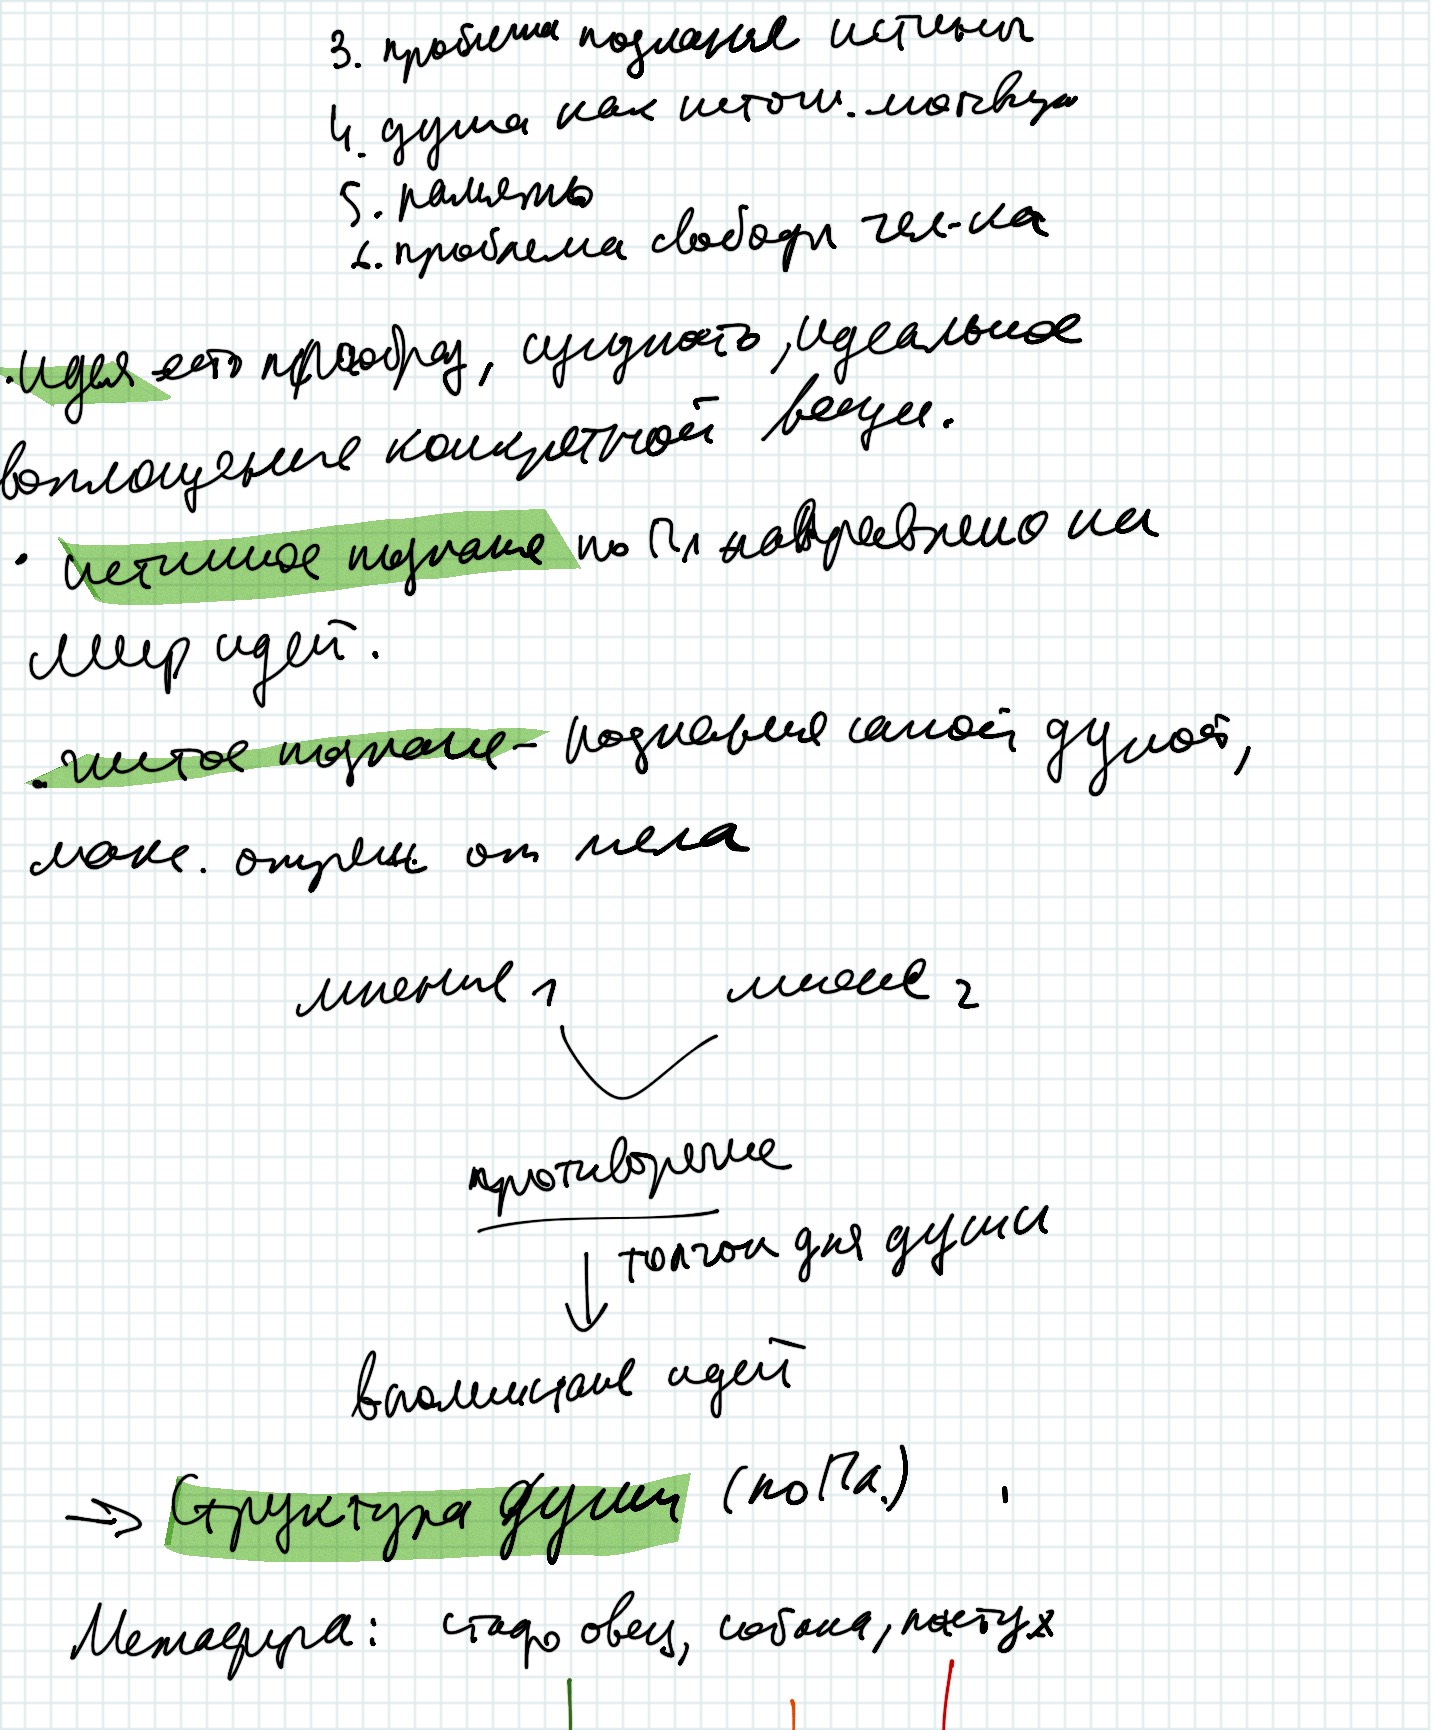 3. проблема познания истины
4. душа как источ. мотивац
5. память
6. проблема свободы чел-ка
• идея есть прообраз, сущность, идеальное
воплощение конкретной вещи.
• истинное познание по Пл направлено на
мир идей.
• чистое познание - познаваемое самой душой,
макс. отреш. от тела
мнение 1 мнение 2
противоречие
толчок для души
вспоминание идей
→ Структура души (по Пл.)
Метафора: стадо овец, собака, пастух